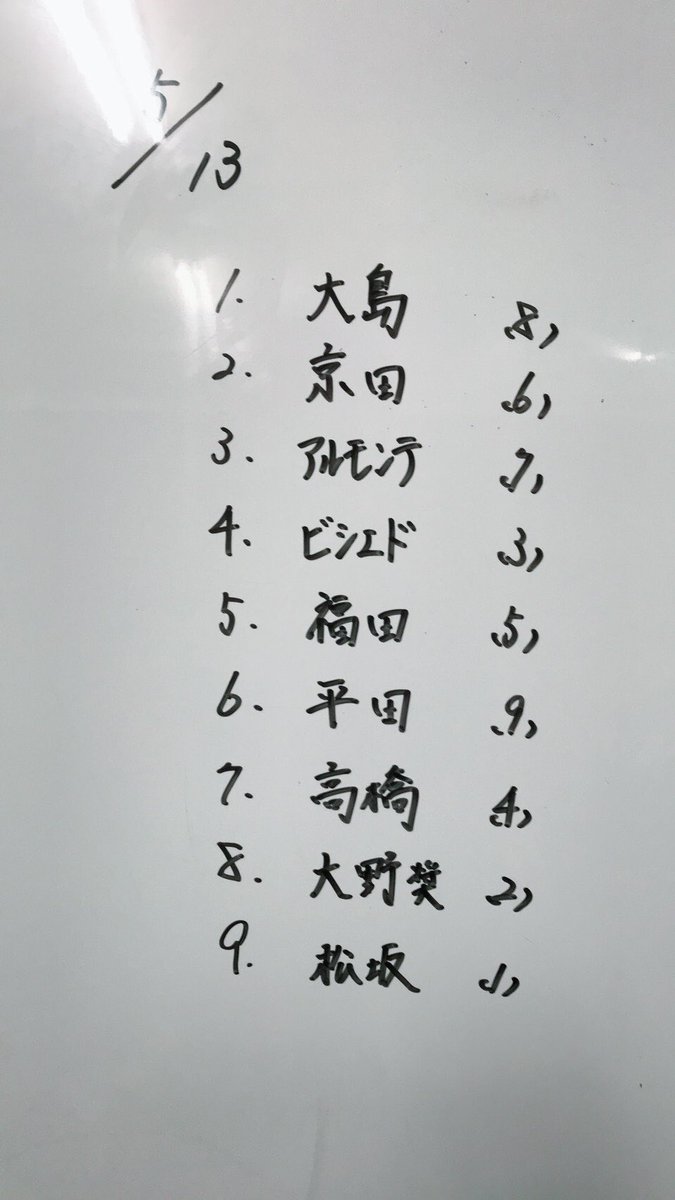 5/13
1. 大島 (8)
2. 京田 (6)
3. アルモンテ (7)
4. ビシエド (3)
5. 福田 (5)
6. 平田 (9)
7. 高橋 (4)
8. 大野奨 (2)
9. 松坂 (1)